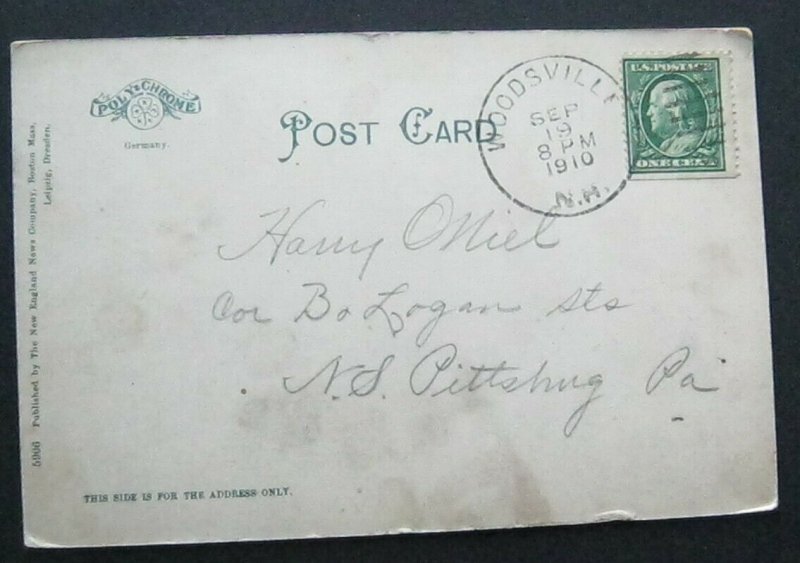 POLY-CHROME
Germany.
POST CARD
WOODSVILLE
SEP
19
8 PM
1910
N.H.
U.S. POSTAGE
ONE CENT
Harry ONiel
Cor Bo Logan Sts
N.S. Pittsburg Pa
5906 Published by The New England News Company, Boston Mass.
Leipzig, Dresden.
THIS SIDE IS FOR THE ADDRESS ONLY.